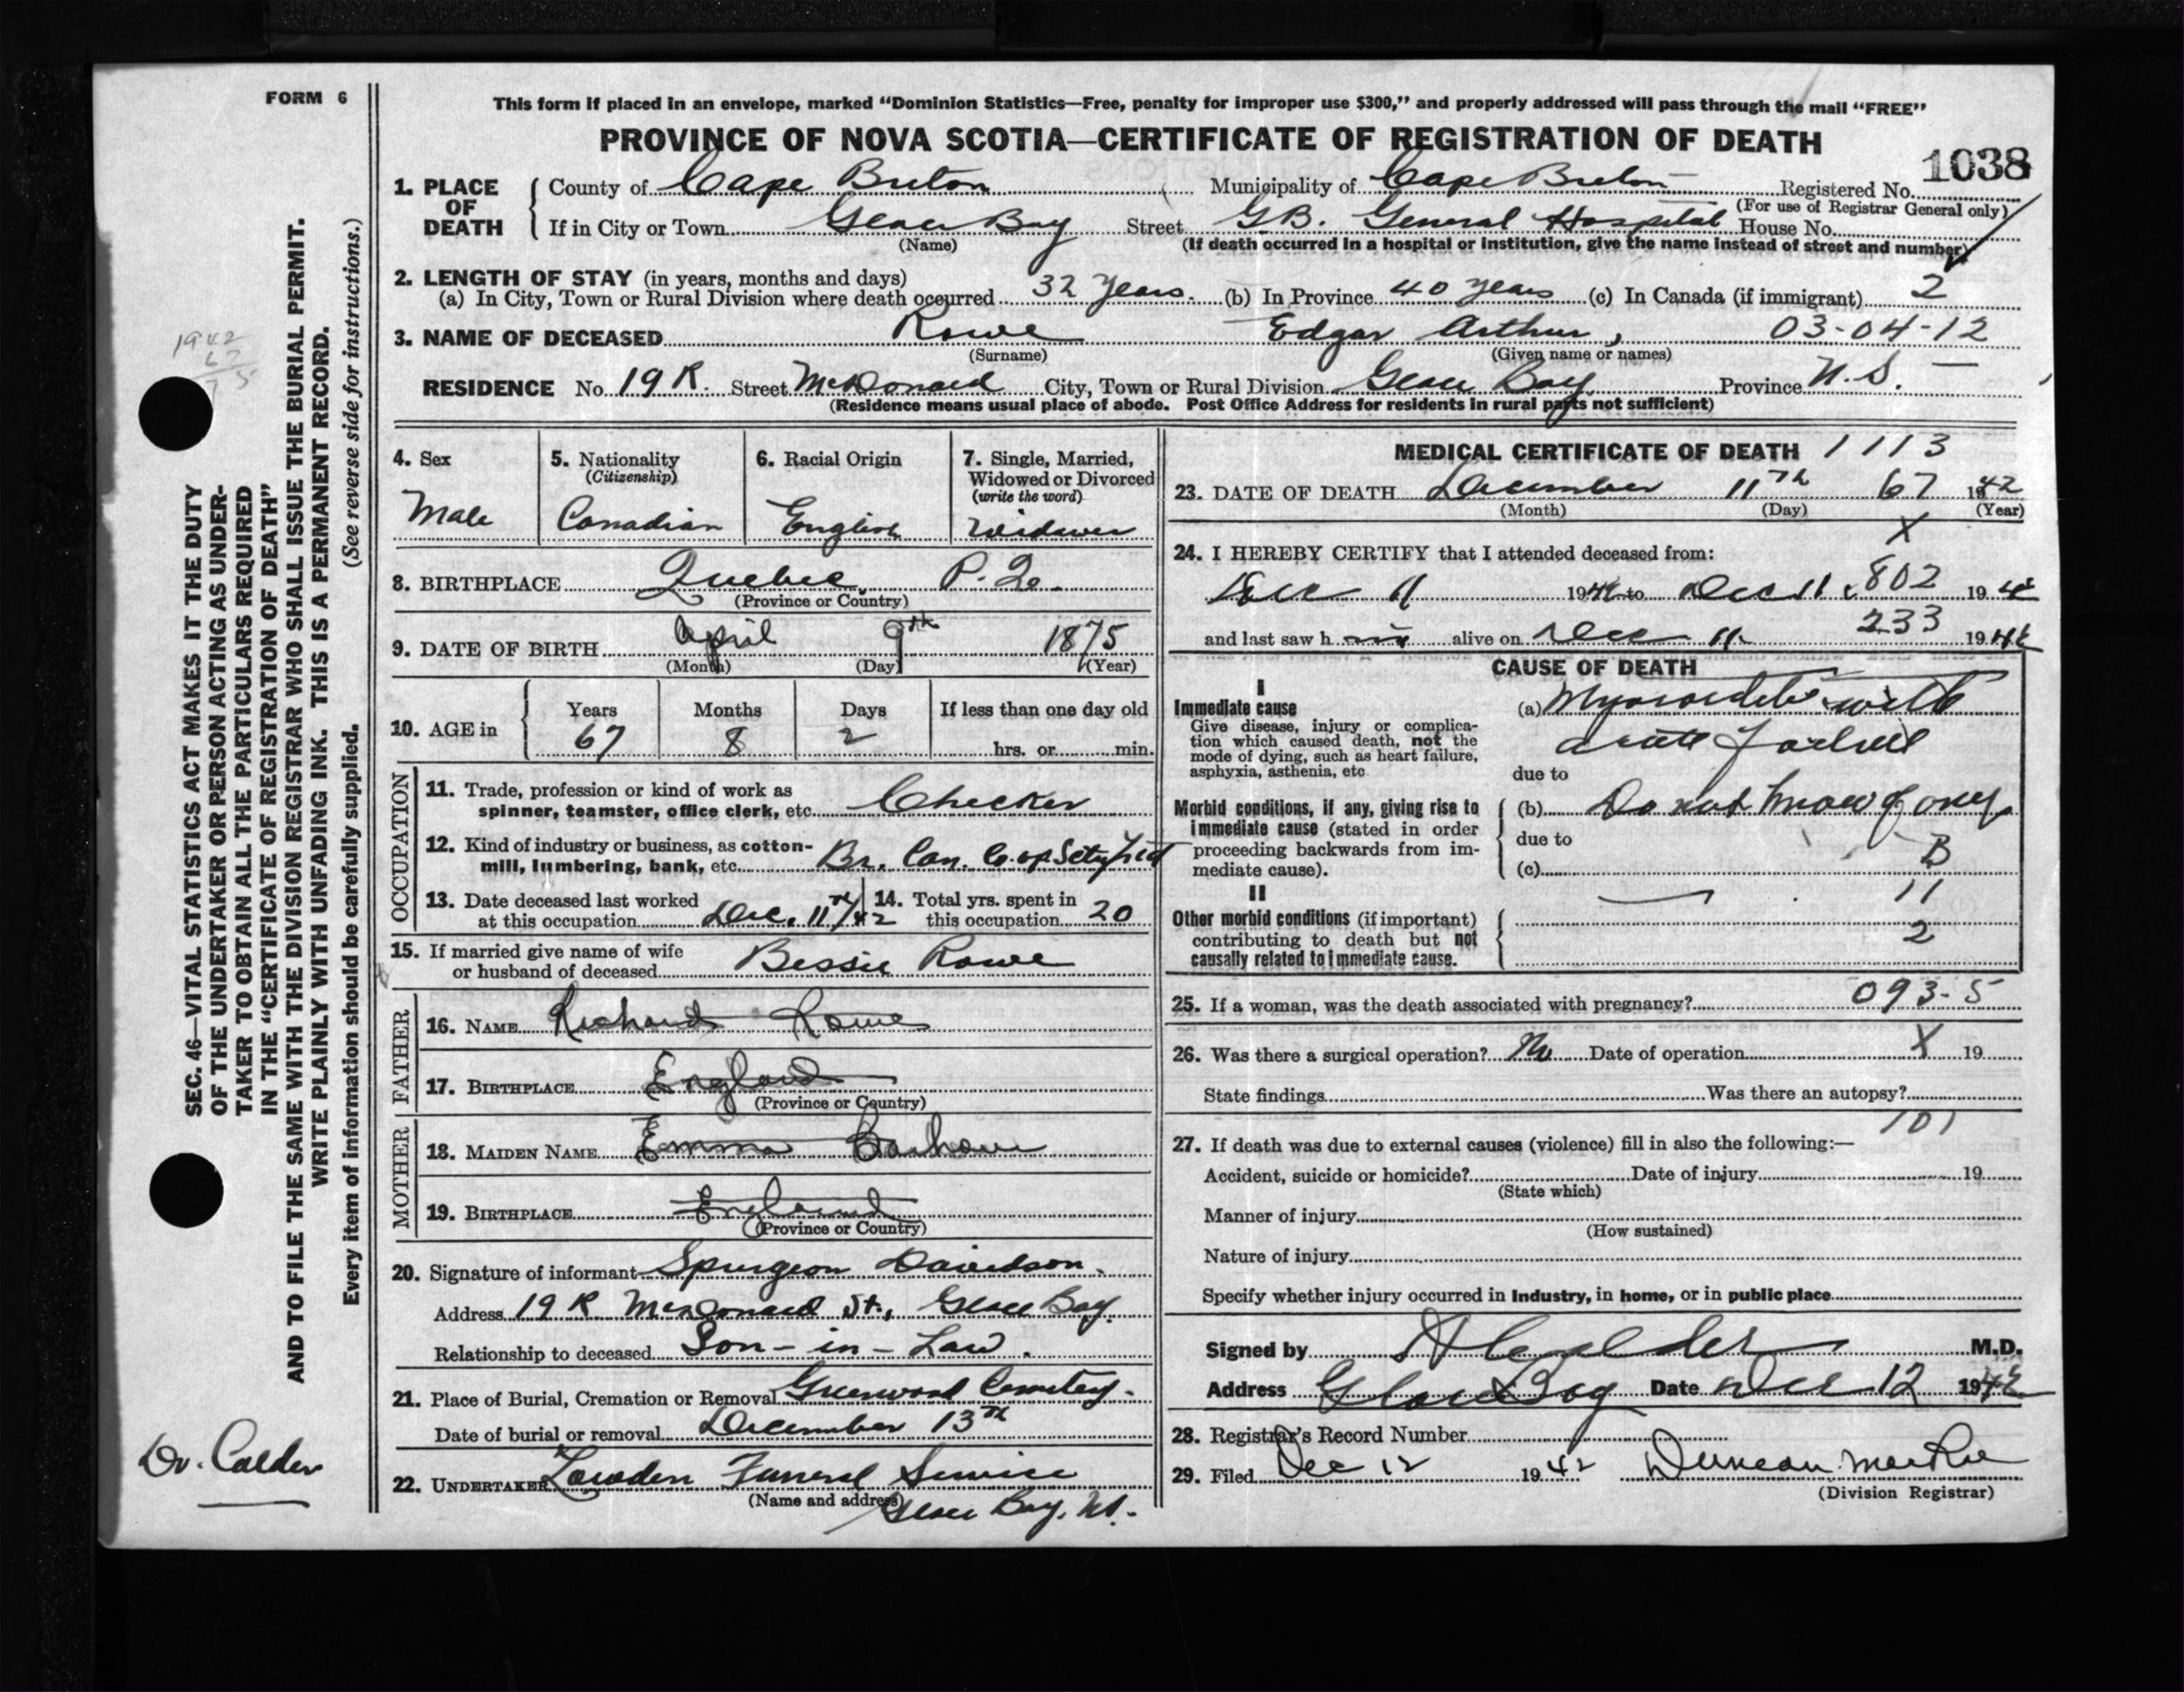 FORM 6
This form if placed in an envelope, marked “Dominion Statistics—Free, penalty for improper use $300,” and properly addressed will pass through the mail “FREE”
PROVINCE OF NOVA SCOTIA—CERTIFICATE OF REGISTRATION OF DEATH
1038
1. PLACE OF DEATH
County of Cape Breton Municipality of Cape Breton Registered No.
(For use of Registrar General only)
If in City or Town Glace Bay Street G.B. General Hospital House No.
(Name) (If death occurred in a hospital or institution, give the name instead of street and number)
2. LENGTH OF STAY (in years, months and days)
(a) In City, Town or Rural Division where death occurred 32 years. (b) In Province 40 years (c) In Canada (if immigrant) 2
3. NAME OF DECEASED Rowe Edgar Arthur, 03-04-12
(Surname) (Given name or names)
RESIDENCE No. 19 R. Street McDonald City, Town or Rural Division Glace Bay Province N.S.
(Residence means usual place of abode. Post Office Address for residents in rural parts not sufficient)
4. Sex
Male
5. Nationality
(Citizenship)
Canadian
6. Racial Origin
English
7. Single, Married,
Widowed or Divorced
(write the word)
Widower
8. BIRTHPLACE Quebec, P. Q.
(Province or Country)
9. DATE OF BIRTH April 9th 1875
(Month) (Day) (Year)
10. AGE in
Years Months Days If less than one day old
67 8 2 hrs. or min.
OCCUPATION
11. Trade, profession or kind of work as
spinner, teamster, office clerk, etc. Checker
12. Kind of industry or business, as cotton-
mill, lumbering, bank, etc. Br. Can. Co-op Scty Ltd
13. Date deceased last worked
at this occupation Dec. 11th/42
14. Total yrs. spent in
this occupation 20
15. If married give name of wife
or husband of deceased Bessie Rowe
FATHER
16. NAME Richard Rowe
17. BIRTHPLACE England
(Province or Country)
MOTHER
18. MAIDEN NAME Emma
19. BIRTHPLACE England
(Province or Country)
20. Signature of informant Spurgeon Davidson.
Address 19 R McDonald St., Glace Bay.
Relationship to deceased Son-in-Law.
21. Place of Burial, Cremation or Removal Greenwood Cemetery.
Date of burial or removal December 13th
22. UNDERTAKER Lowden Funeral Service
(Name and address)
Glace Bay, N.S.
MEDICAL CERTIFICATE OF DEATH 1113
23. DATE OF DEATH December 11th 67 1942
(Month) (Day) (Year)
X
24. I HEREBY CERTIFY that I attended deceased from:
Dec 11 1942 to Dec 11 802 1942
and last saw h im alive on Dec 11. 233 1942
CAUSE OF DEATH
I
Immediate cause
Give disease, injury or complica-
tion which caused death, not the
mode of dying, such as heart failure,
asphyxia, asthenia, etc
(a) Myocarditis with
acute failure
due to
Morbid conditions, if any, giving rise to
immediate cause (stated in order
proceeding backwards from im-
mediate cause).
(b) Do not know of any.
due to
B
(c)
II
11
Other morbid conditions (if important)
contributing to death but not
causally related to immediate cause.
2
25. If a woman, was the death associated with pregnancy? 093-5
26. Was there a surgical operation? No Date of operation X 19
State findings Was there an autopsy?
101
27. If death was due to external causes (violence) fill in also the following:—
Accident, suicide or homicide? Date of injury 19
(State which)
Manner of injury
(How sustained)
Nature of injury
Specify whether injury occurred in Industry, in home, or in public place
Signed by Calder M.D.
Address Glace Bay Date Dec 12 1942
28. Registrar's Record Number
29. Filed Dec 12 1942 Duncan MacRae
(Division Registrar)
SEC. 46—VITAL STATISTICS ACT MAKES IT THE DUTY
OF THE UNDERTAKER OR PERSON ACTING AS UNDER-
TAKER TO OBTAIN ALL THE PARTICULARS REQUIRED
IN THE “CERTIFICATE OF REGISTRATION OF DEATH”
AND TO FILE THE SAME WITH THE DIVISION REGISTRAR WHO SHALL ISSUE THE BURIAL PERMIT.
WRITE PLAINLY WITH UNFADING INK. THIS IS A PERMANENT RECORD.
Every item of information should be carefully supplied. (See reverse side for instructions.)
1942
67
75
Dr. Calder